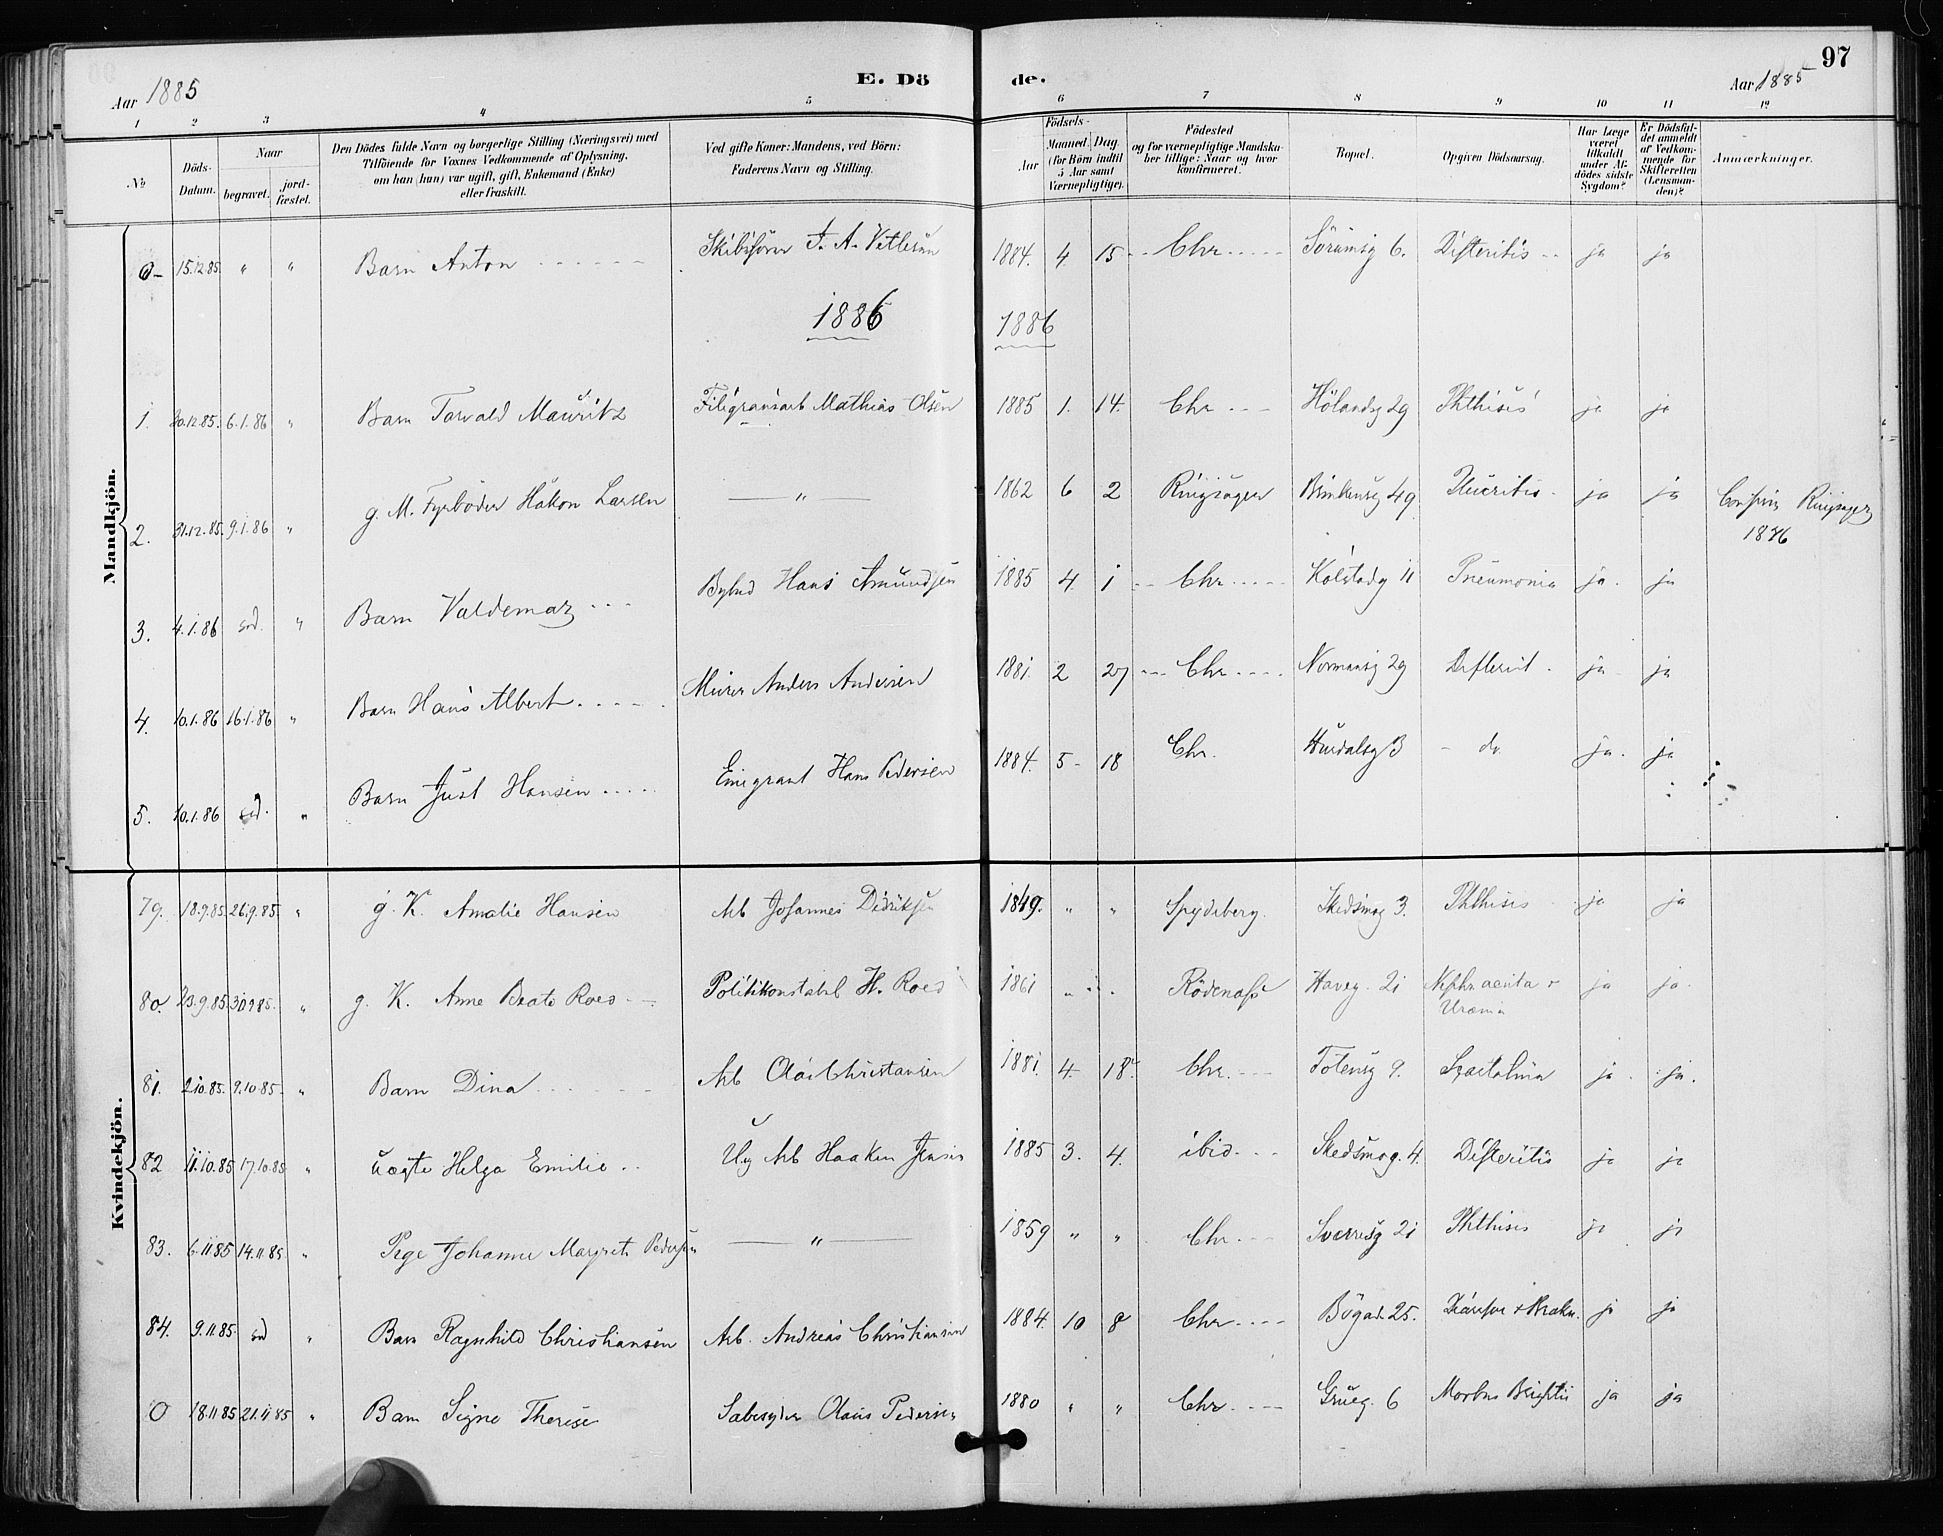 97
Aar 1885
E. Dö
de.
Aar 1885
1 2 3 4 5 6 7 8 9 10 11 12
No
Döds-Datum.
Naar
begravet.
jord-fæstet.
Den Dödes fulde Navn og borgerlige Stilling (Næringsvei) med
Tilföiende for Voxnes Vedkommende af Oplysning,
om han (hun) var ugift, gift, Enkemand (Enke)
eller fraskilt.
Ved gifte Koner: Mandens, ved Börn:
Faderens Navn og Stilling.
Födsels-
Aar
Maaned. Dag
(for Börn indtil
5 Aar samt
Værnepligtige).
Födested
og for værnepligtige Mandska-
ber tillige: Naar og hvor
konfirmeret.
Bopæl.
Opgiven Dödsaarsag.
Har Læge
været
tilkaldt
under Af-
dödes sidste
Sygdom?
Er Dödsfal-
det anmeldt
af Vedkom-
mende for
Skifteretten
(Lensman-
den)?
Anmærkninger.
Mandkjön.
0 15.12.85 " " Barn Anton Skibsförer A. Vetlesen 1884. 4. 15 Chr Sörumsg 6. Difteritis ja ja
1886 1886
1. 30.12.85. 6.1.86 " Barn Torvald Mauritz Filigransarb Mathias Olsen 1885 1. 14. Chr Hölandsg 29 Phthisis ja ja
2. 31.12.85. 9.1.86 " g. M. Fyrböder Håkon Larsen " 1862 6 2 Ringsager 49 ja ja Ringsager
3. 4.1.86 " Barn Valdemar Hans Amundsen 1885 4. 1 Chr Kolstadg 11 Pneumonia ja ja
4. 10.1.86 16.1.86 " Barn Hans Albert Murer Anders Andersen 1881. 2 27 Chr Normansg 29 Difterit ja ja
5. 10.1.86 " Barn Just Hansen Emigrant Hans Pedersen 1884. 5 18 Chr. Hurdalsg do. ja ja
Kvindekjön.
79. 18.9.85. 26.9.85. " g. K. Amalie Hansen Arb Johannes Didriksen 1849. " " Spydeberg. Skedsmog 3. Phthisis ja ja
80. 23.9.85. 30.9.85. " g. K. Anne Beate Roes Politikonstabel H. Roes 1861 Rödenæs Haveg. 21 Nephr acuta +
Uræmia ja ja
81. 2.10.85. 9.10.85. " Barn Dina Arb Olai Christansen 1881. 4. 18. Chr. Totensg 9. ja ja.
82 11.10.85 17.10.85 " uægte Helga Emilie Ug Arb Haaken Jensen 1885 3. 4. ibid. Skedsmog. 4. Difteritis ja ja
83. 6.11.85 14.11.85 " Pige Johanne Margrete Pedersen " 1859 " " Chr. Sverresg 21 Phthisis ja ja
84. 9.11.85 " Barn Ragnhild Christiansen Arb. Andreas Christiansen 1884. 10 8 Chr 25. ja ja
0 18.11.85 21.11.85 " Barn Signe Therese Olaus Pedersen 1880 " " Chr. Grueg. 6 Morbus Brightii ja ja